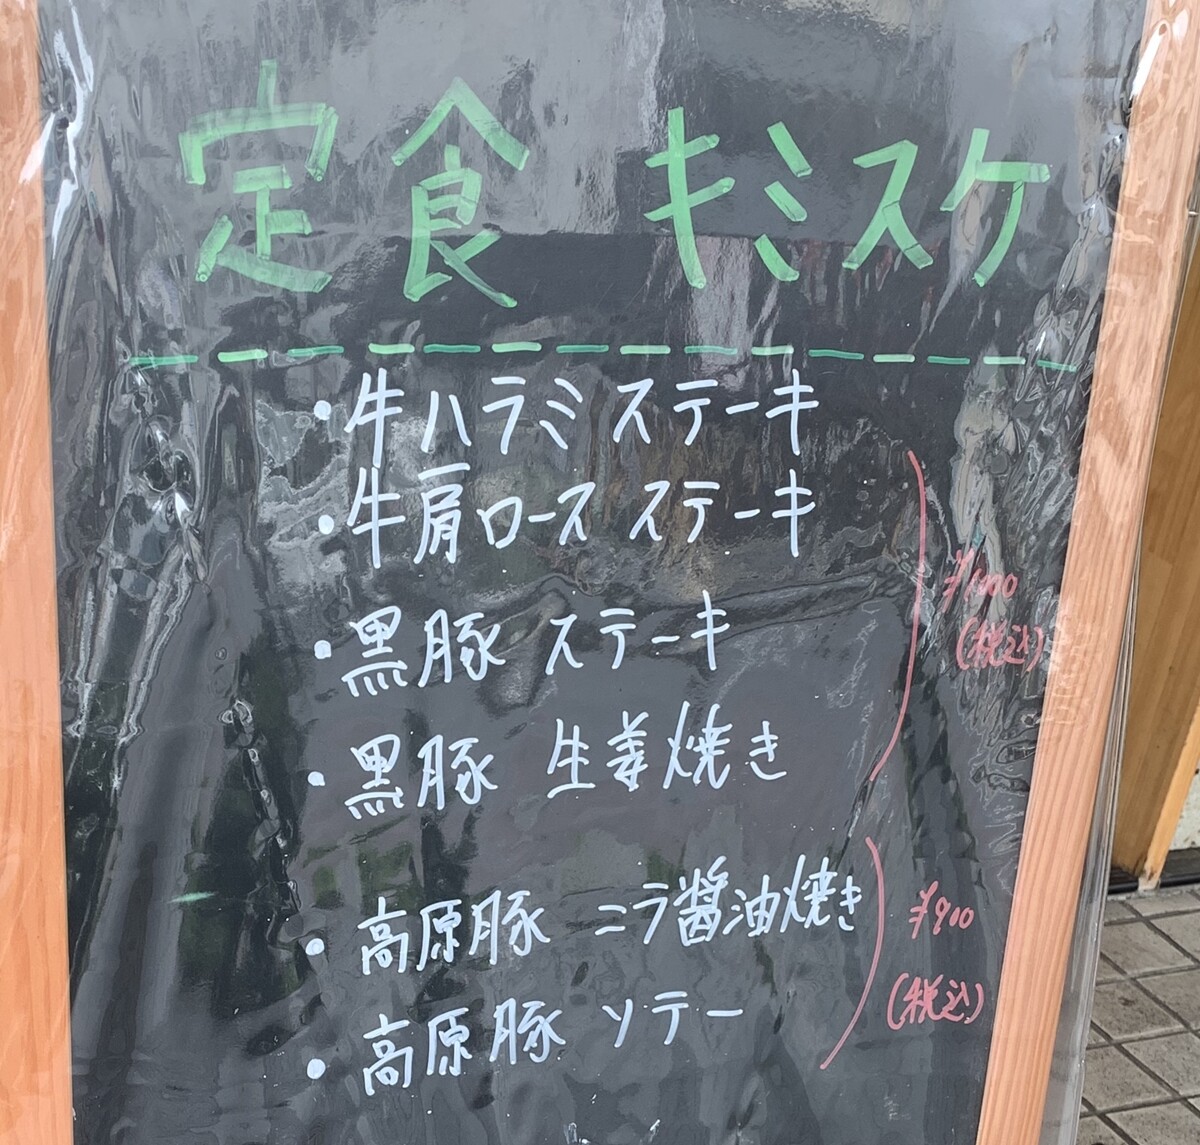 定食 キミスケ
・牛ハラミステーキ
・牛肩ロースステーキ
・黒豚 ステーキ
・黒豚 生姜焼き
(税込)
・高原豚 ニラ醤油焼き
・高原豚 ソテー
¥900
(税込)